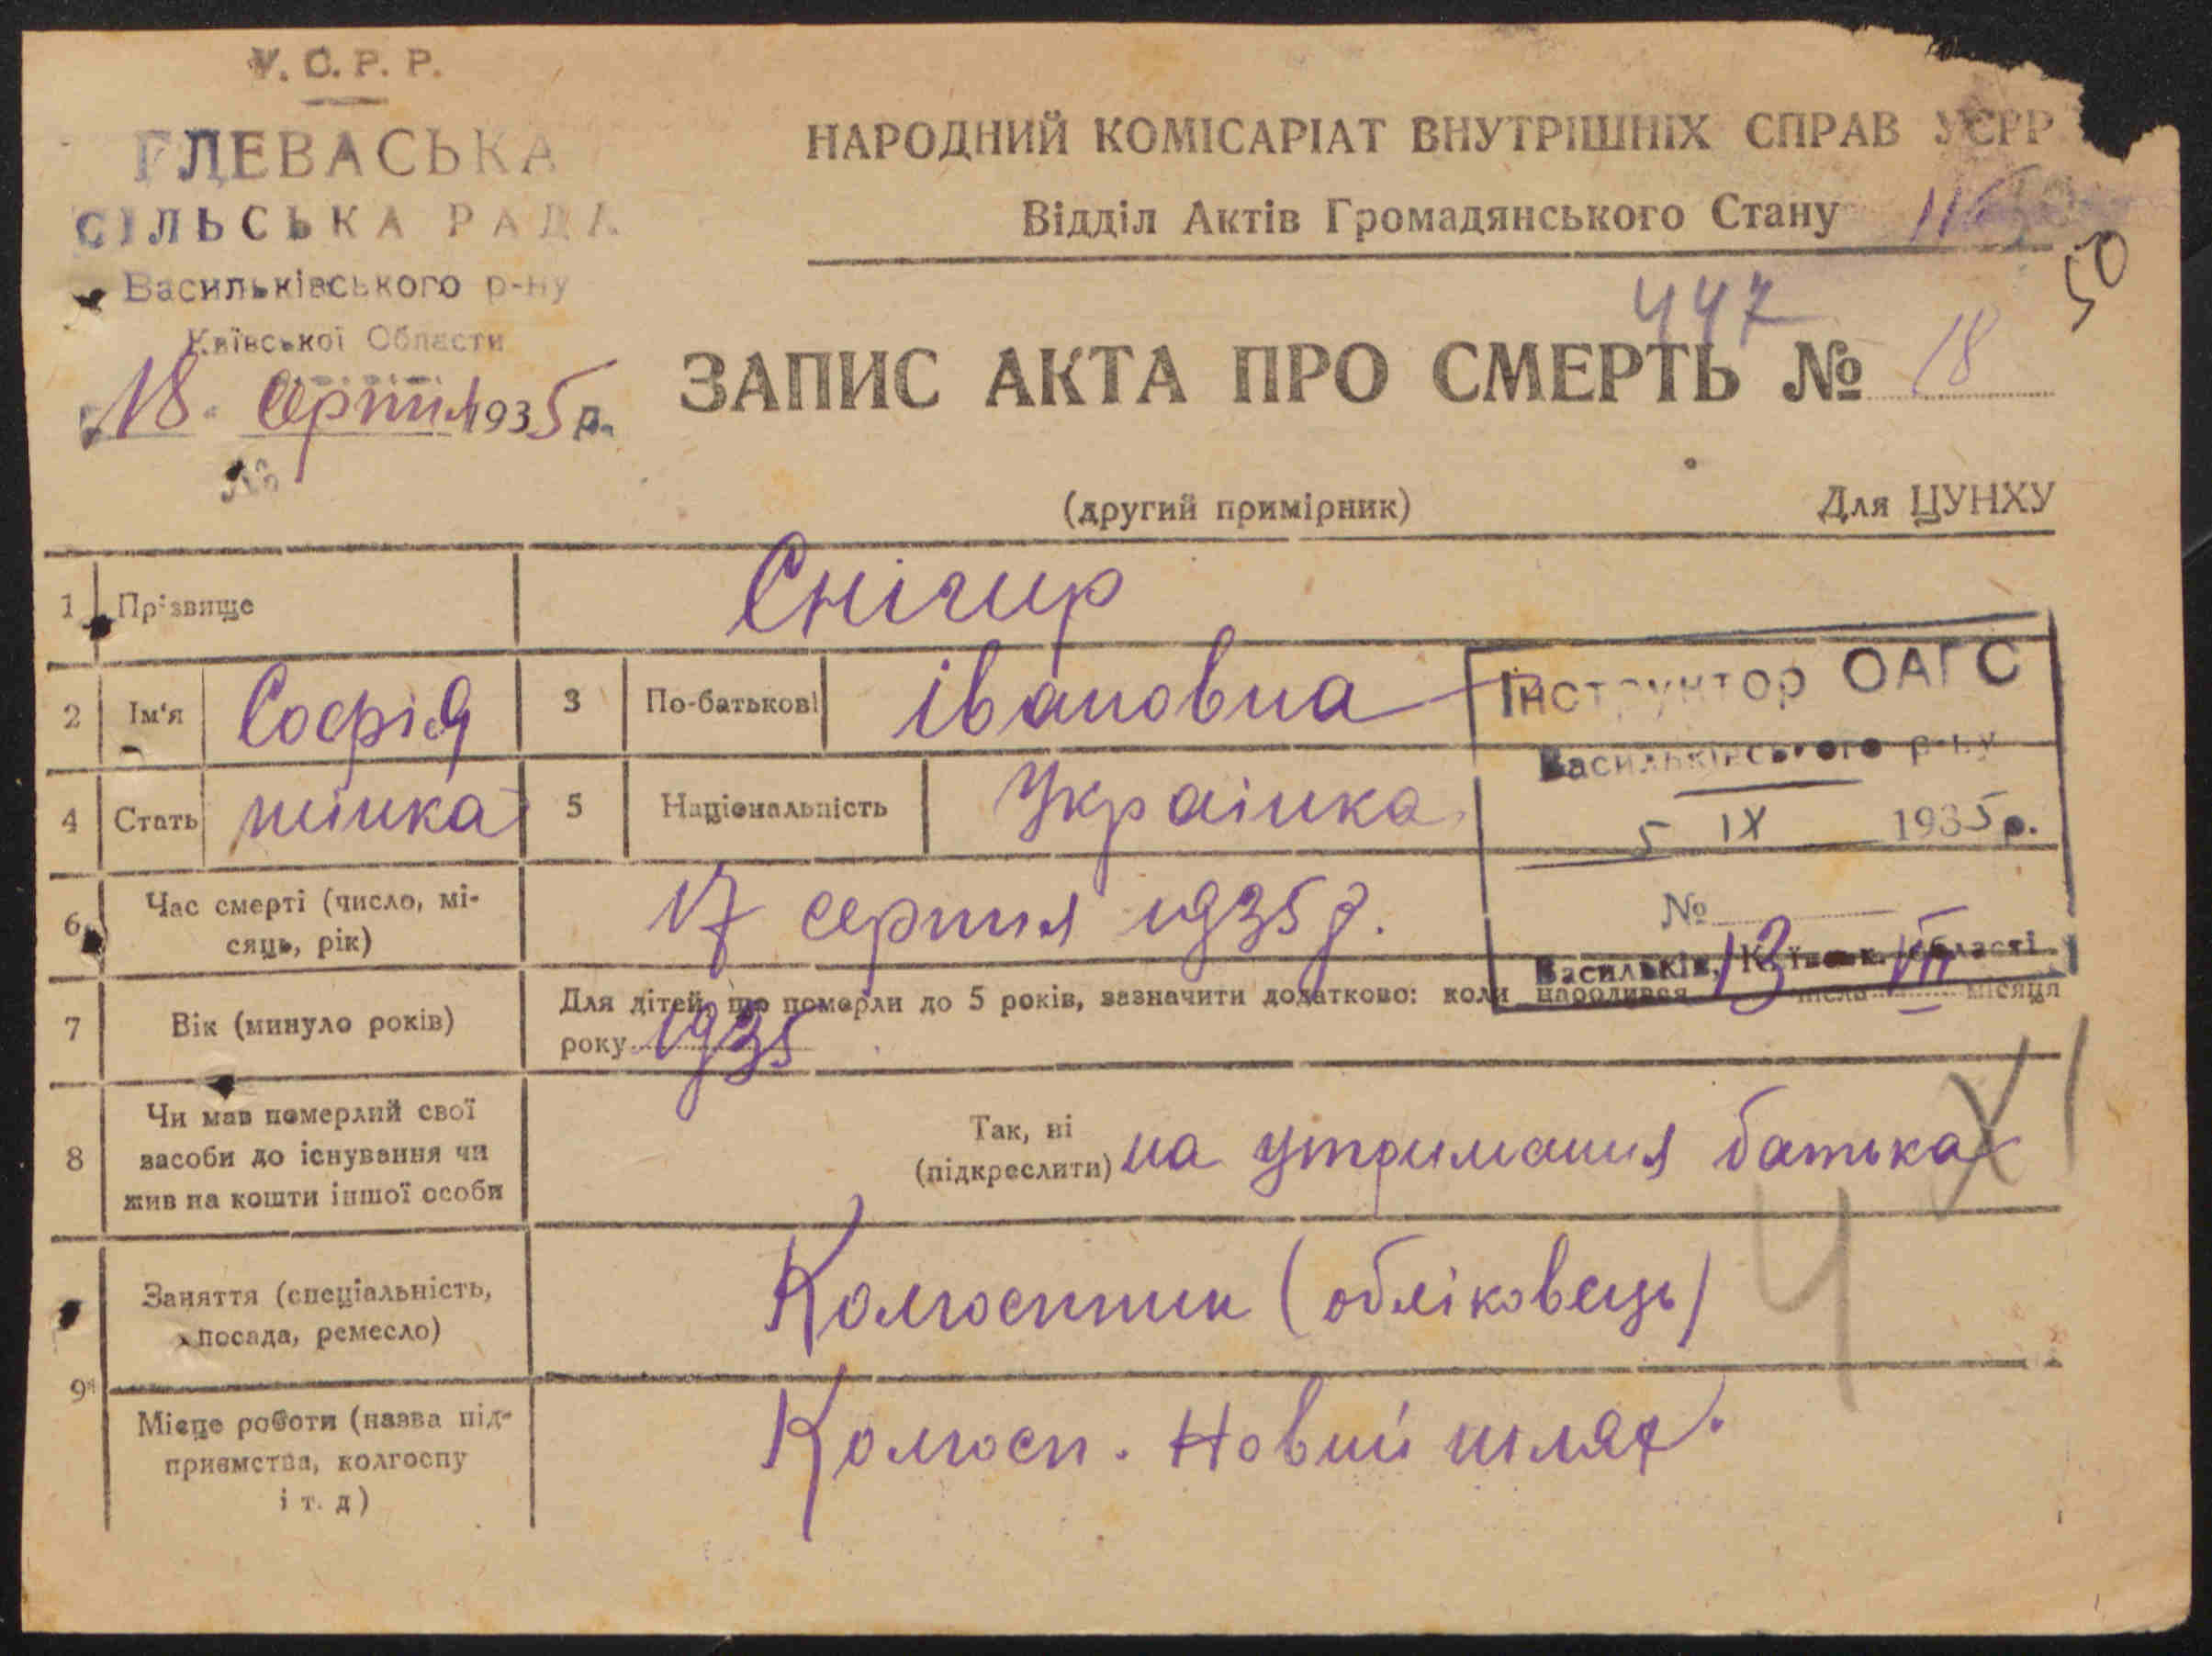 У.С.Р.Р.
ГЛЕВАСЬКА
СІЛЬСЬКА РАДА
Васильківського р-ну
Київської Области
18 серпня 1935 р.
№
НАРОДНИЙ КОМІСАРІАТ ВНУТРІШНІХ СПРАВ УСРР
Відділ Актів Громадянського Стану
50
447
ЗАПИС АКТА ПРО СМЕРТЬ № 18
(другий примірник)
Для ЦУНХУ
1 Прізвище Снігир
2 Ім'я Софія 3 По-батькові Івановна
4 Стать жінка 5 Національність Українка
Інструктор ОАГС
Васильківського р-ну
5 IX 1935 р.
№
Васильків, Київськ. області
6 Час смерті (число, мі-
сяць, рік) 17 серпня 1935 р.
7 Вік (минуло років) Для дітей, що померли до 5 років, зазначити додатково: коли народився 13 числа VII місяця
року 1935
8 Чи мав померлий свої
засоби до існування чи
жив на кошти іншої особи
Так, ні
(підкреслити) на утримання батька
XI
Ч
9 Заняття (спеціальність,
посада, ремесло) Колгоспник (обліковець)
Місце роботи (назва під-
приємства, колгоспу
і т. д) Колгосп. Новий шлях.